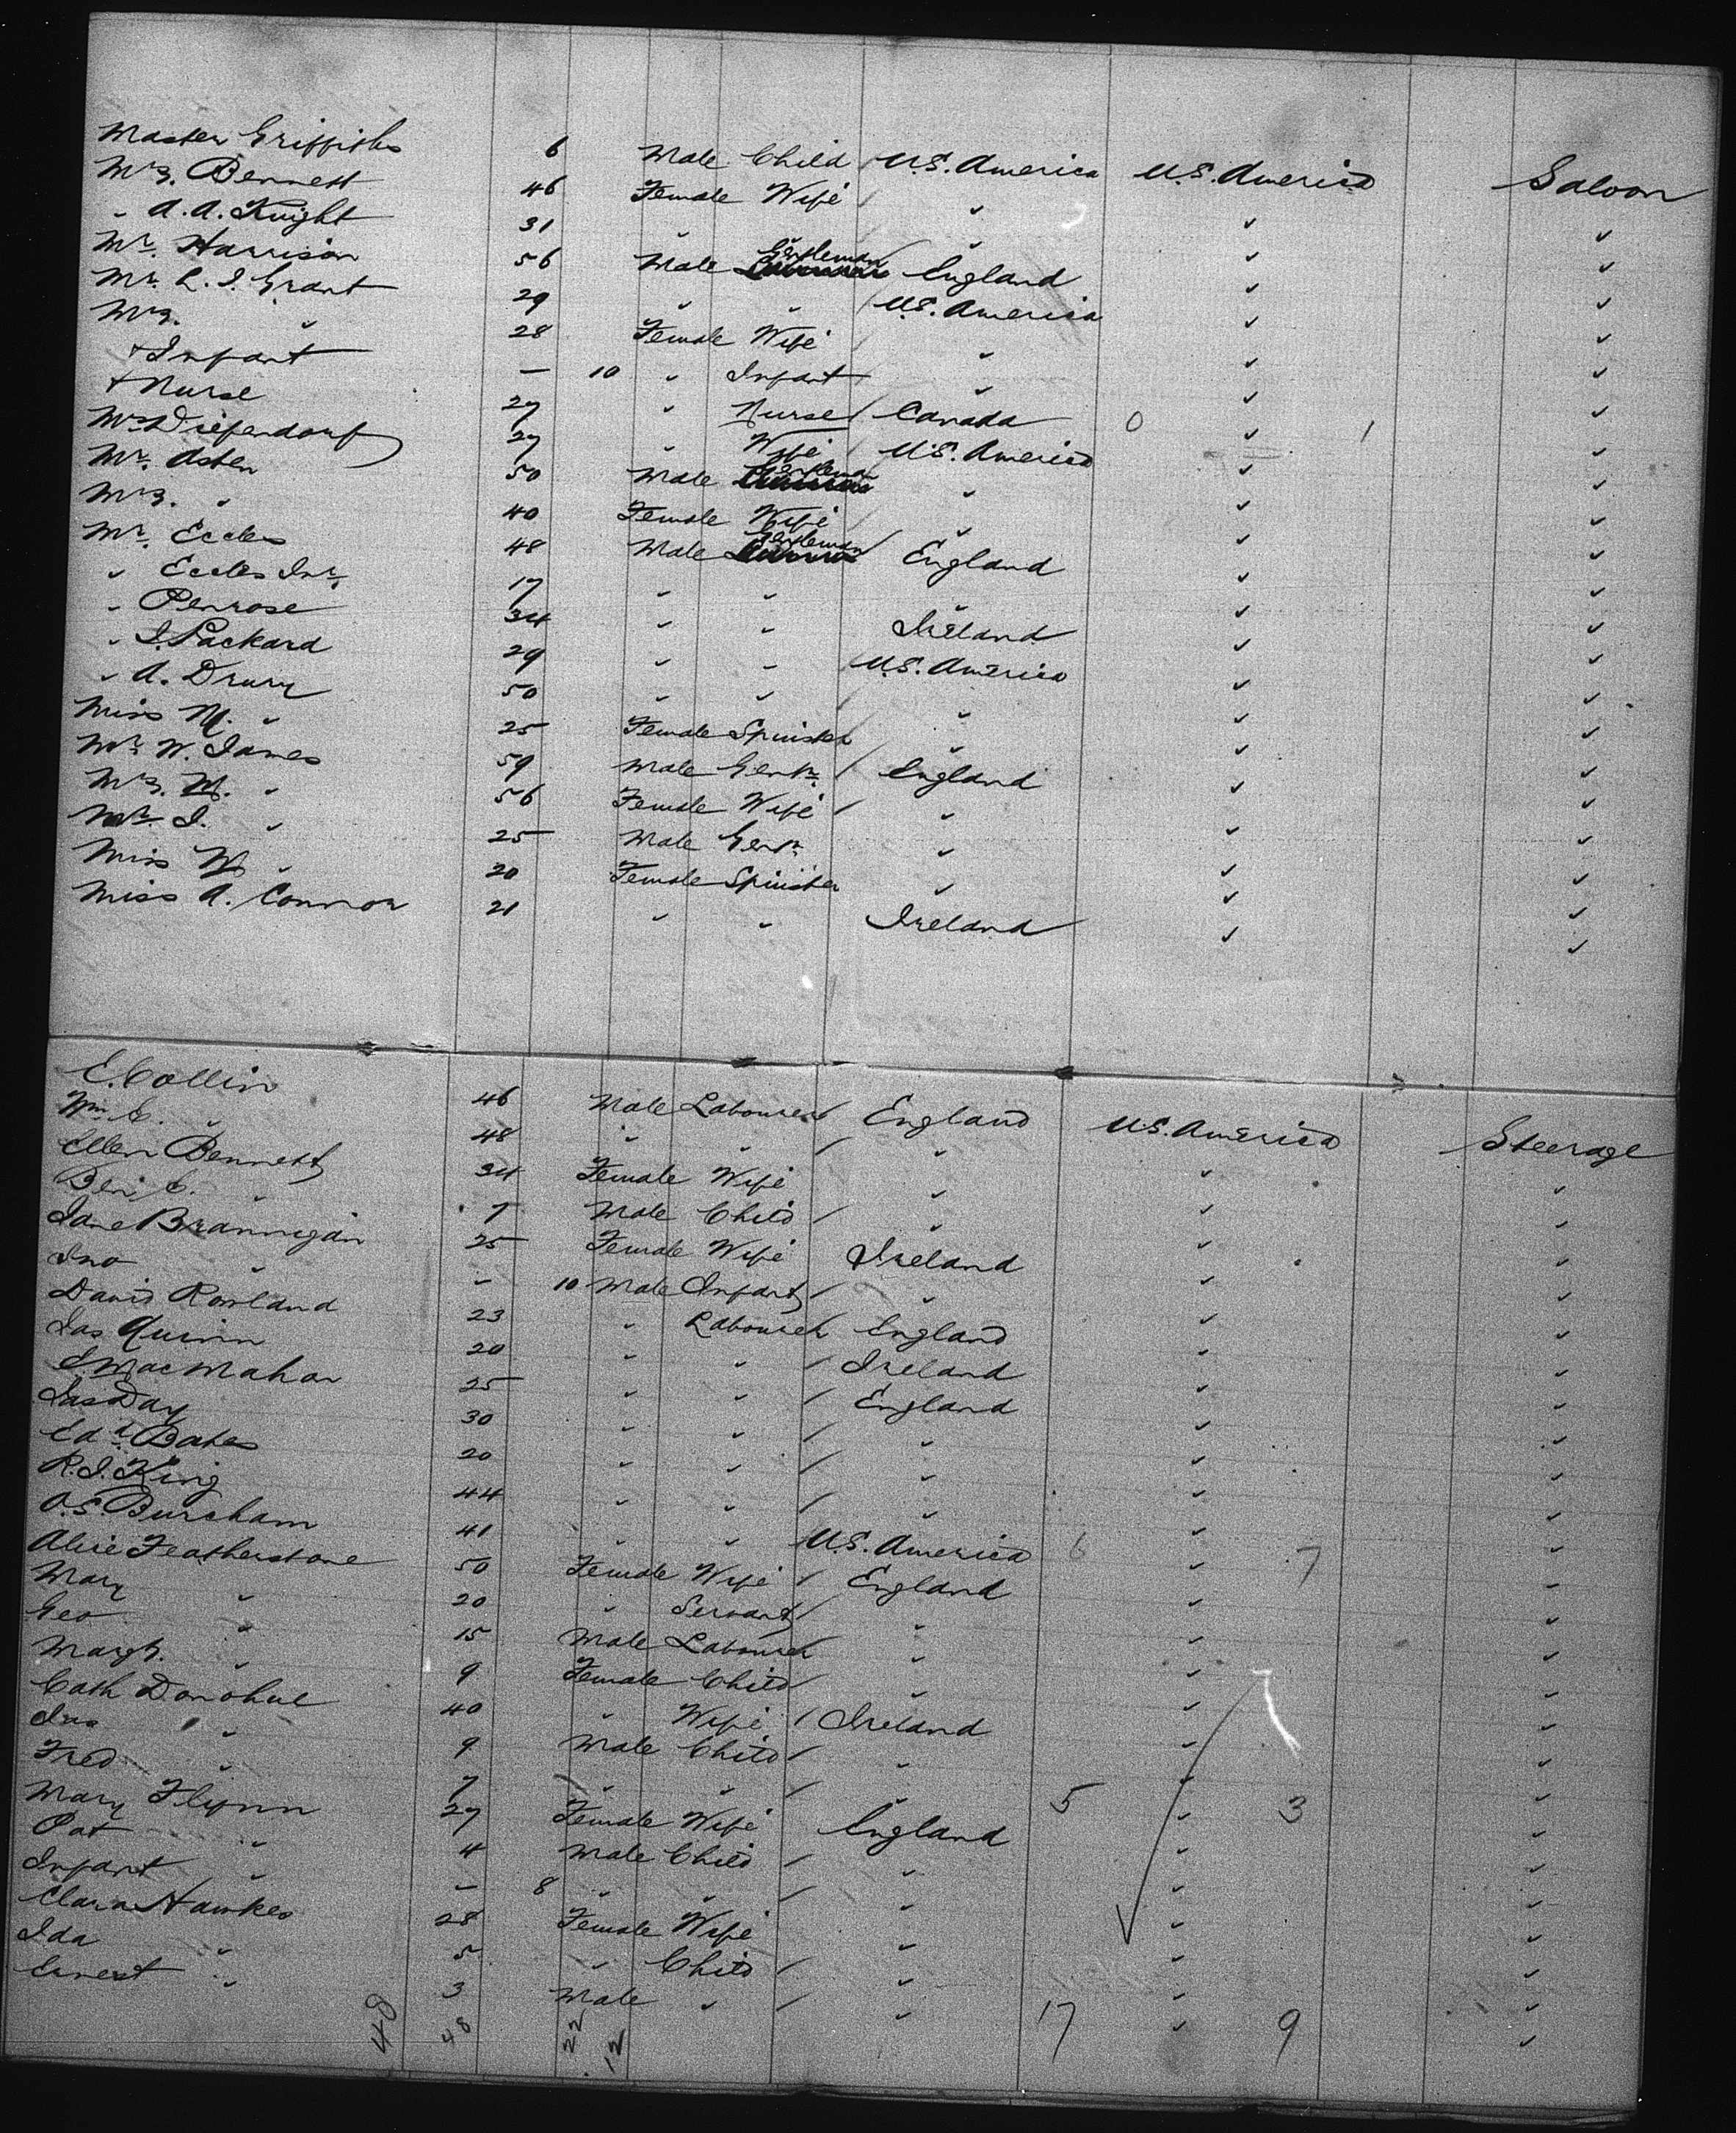 Master Griffiths 6 Male Child U.S. America U.S. America Saloon
Mrs. Bennett 46 Female Wife " " "
" A.A. Knight 31 " " " " "
Mr. Harrison 56 Male Gentleman England " "
Mr. L.J. Grant 29 " " U.S. America " "
Mrs. " 28 Female Wife " " "
+ Infant — 10 " Infant " " "
+ Nurse 27 " Nurse Canada 0 " 1 "
Mrs Diefendorf 27 " Wife U.S. America " "
Mr. Asten 50 Male Gentleman " " "
Mrs. " 40 Female Wife " " "
Mr. Eccles 48 Male Gentleman England " "
" Eccles Jnr. 17 " " " " "
" Penrose 34 " " Ireland " "
" J. Packard 29 " " U.S. America " "
" A. Drury 50 " " " " "
Miss M. " 25 Female Spinster " " "
Mr. W. James 59 Male Gentn. England " "
Mrs. M. " 56 Female Wife " " "
Mr. J. " 25 Male Gentn. " " "
Miss M " 20 Female Spinster " " "
Miss A. Connor 21 " " Ireland " "
E. Collin 46 Male Labourer England U.S. America Steerage
Wm. C. " 48 " " " " "
Ellen Bennett 34 Female Wife " " "
Benj. C. " 7 Male Child " " "
Jane Brannigan 25 Female Wife Ireland " "
Jno " - 10 Male Infant " " "
David Rowland 23 " Labourer England " "
Jas Quinn 20 " " Ireland " "
J. MacMahon 25 " " England " "
Jas Day 30 " " " " "
Edd. Bates 20 " " " " "
R.J. King 44 " " " " "
O.S. Burcham 41 " " U.S. America 6 " 7 "
Alice Featherstone 50 Female Wife England " "
Mary " 20 " Servant " " "
Geo " 15 Male Labourer " " "
Margt. " 9 Female Child " " "
Cath Donohue 40 " Wife Ireland " "
Jno " 9 Male Child " " "
Fred " 7 " " " 5 " 3 "
Mary Flynn 27 Female Wife England " "
Pat " 4 Male Child " " "
Infant " — 8 " " " " "
Clara Hawkes 28 Female Wife " " "
Ida " 5 " Child " " "
Ernest " 3 Male " " 17 " 9 "
48 48 22 12